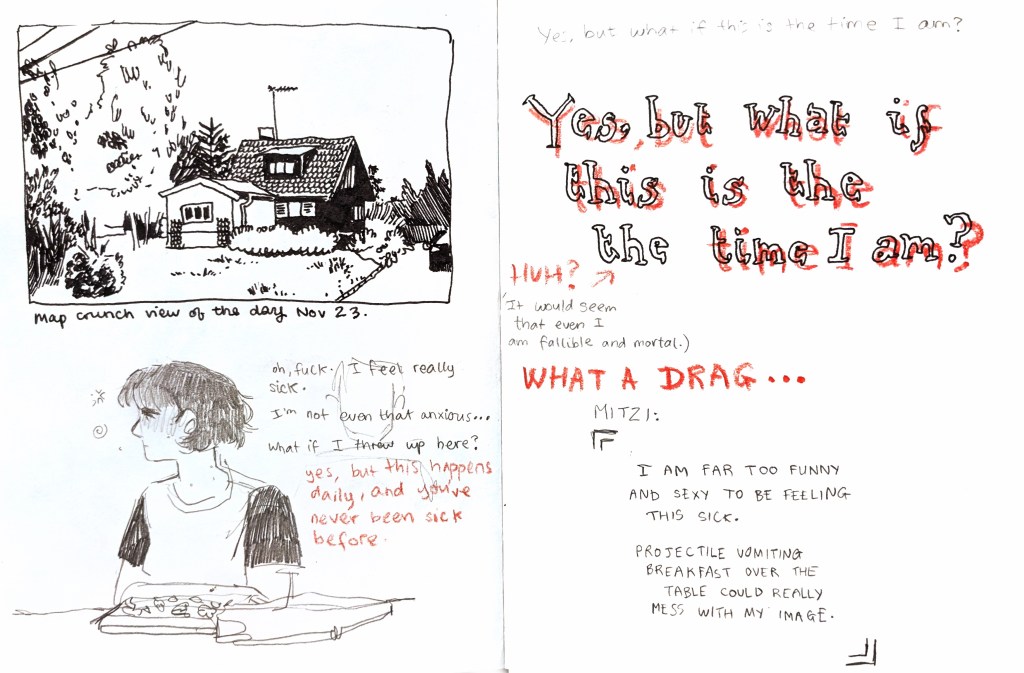 Map crunch view of the day Nov 23.
oh, fuck. I feel really
sick.
I'm not even that anxious...
what if I threw up here?
yes, but this happens
daily, and you've
never been sick
before.
Yes, but what if this is the time I am?
Yes, but what if
this is the
the time I am?
HUH?
(It would seem
that even I
am fallible and mortal.)
WHAT A DRAG...
MITZI:
I AM FAR TOO FUNNY
AND SEXY TO BE FEELING
THIS SICK.
PROJECTILE VOMITING
BREAKFAST OVER THE
TABLE COULD REALLY
MESS WITH MY IMAGE.